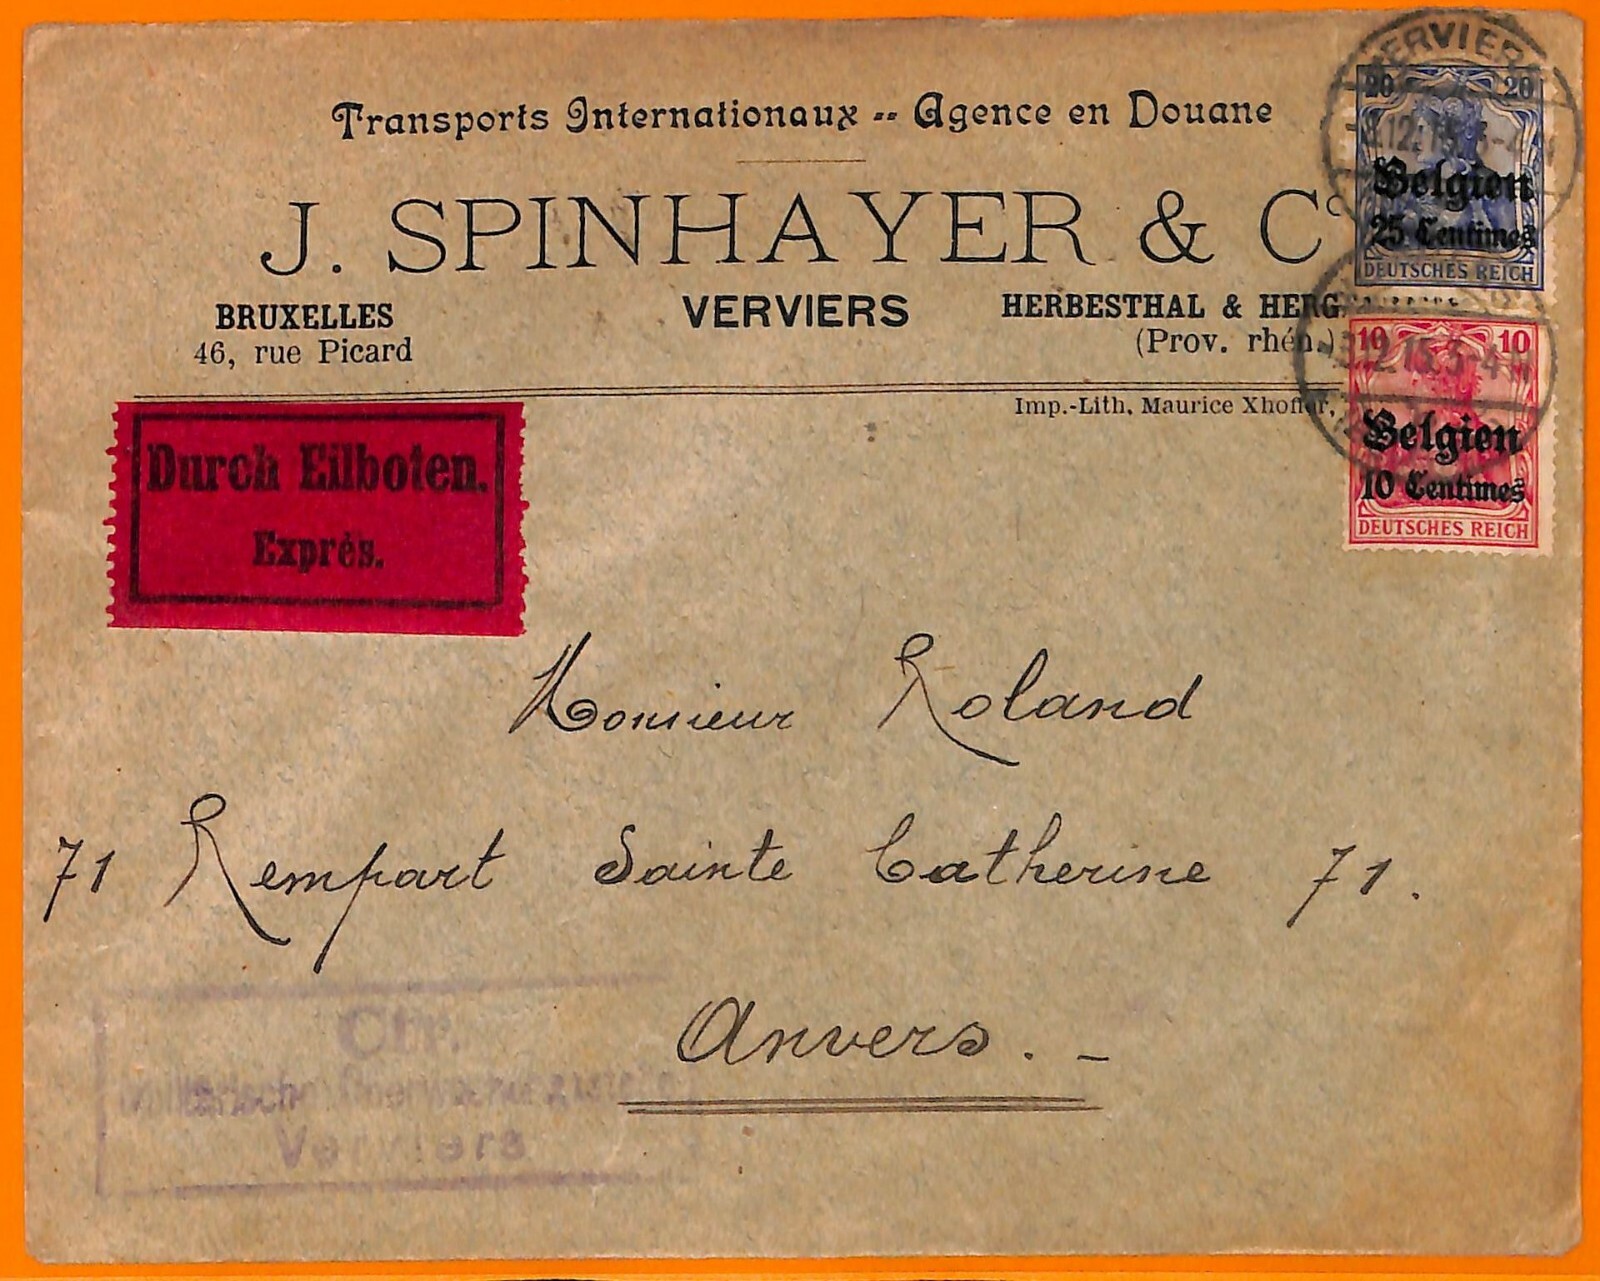 Transports Internationaux -- Agence en Douane
J. SPINHAYER & Cº
BRUXELLES
46, rue Picard
VERVIERS
HERBESTHAL & HERG
(Prov. rhén.)
Imp.-Lith. Maurice Xhoffer,
VERVIERS
12.15.3-4
20 20
Belgien
25 Centimes
DEUTSCHES REICH
12.15.3-4
10 10
Belgien
10 Centimes
DEUTSCHES REICH
Durch Eilboten.
Exprès.
Monsieur Roland
71 Rempart Sainte Catherine 71.
Anvers. -
Militärische Überwachungsstelle
Verviers